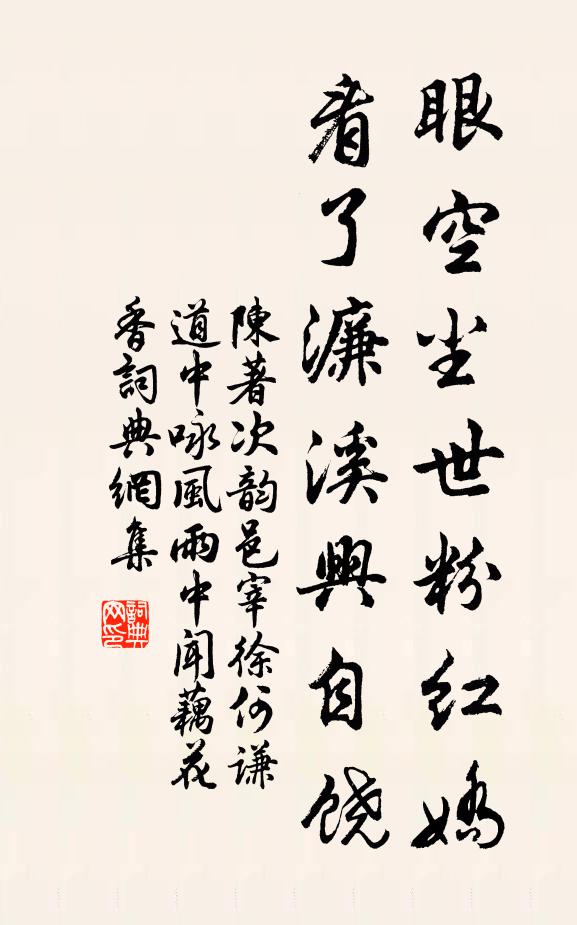 眼空尘世粉红娇
看了濂溪興自饶
陳著次韵邑宰徐何谦
道中咏風雨中闻藕花
香詞典網集
詞典
网印